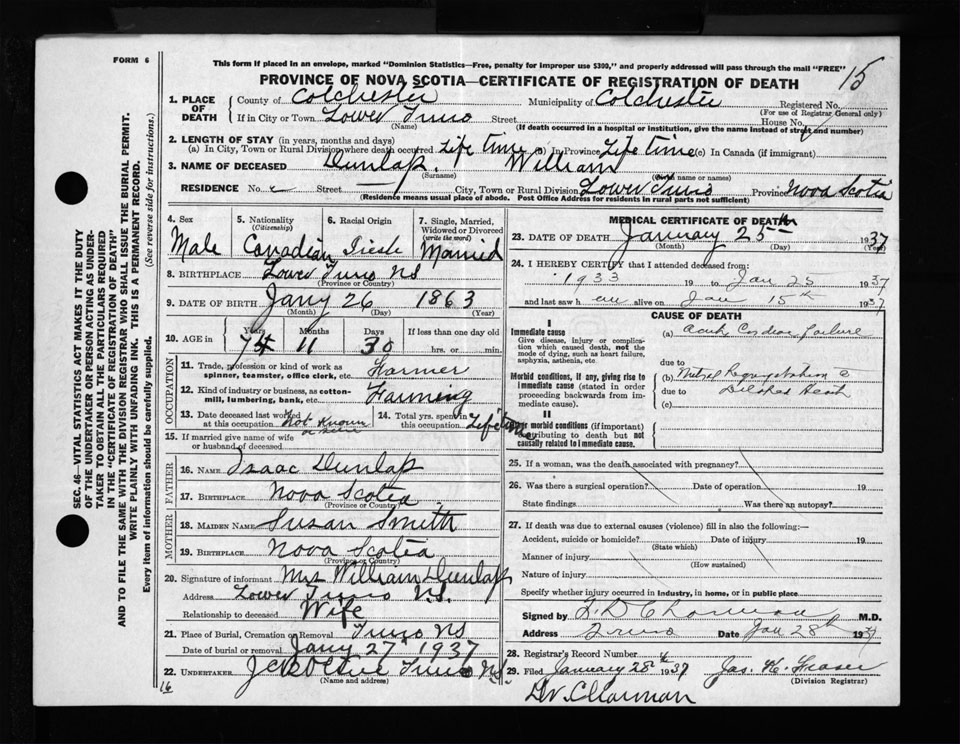 FORM 6
This form if placed in an envelope, marked "Dominion Statistics—Free, penalty for improper use $300," and properly addressed will pass through the mail "FREE"
PROVINCE OF NOVA SCOTIA—CERTIFICATE OF REGISTRATION OF DEATH
15
1. PLACE OF DEATH
County of Colchester Municipality of Colchester Registered No.
(For use of Registrar General only)
If in City or Town Lower Truro Street House No.
(Name) (If death occurred in a hospital or institution, give the name instead of street and number)
2. LENGTH OF STAY (in years, months and days)
(a) In City, Town or Rural Division where death occurred Life time (b) In Province Life time (c) In Canada (if immigrant)
3. NAME OF DECEASED Dunlap. William
(Surname) (Given name or names)
RESIDENCE No. Street City, Town or Rural Division Lower Truro Province Nova Scotia
(Residence means usual place of abode. Post Office Address for residents in rural parts not sufficient)
4. Sex Male
5. Nationality (Citizenship) Canadian
6. Racial Origin Irish
7. Single, Married, Widowed or Divorced (write the word) Married
8. BIRTHPLACE Lower Truro NS
(Province or Country)
9. DATE OF BIRTH Jany 26 1863
(Month) (Day) (Year)
10. AGE in Years Months Days If less than one day old
74 11 30 hrs. or min.
OCCUPATION
11. Trade, profession or kind of work as spinner, teamster, office clerk, etc. Farmer
12. Kind of industry or business, as cotton-mill, lumbering, bank, etc. Farming
13. Date deceased last worked at this occupation Not Known
14. Total yrs. spent in this occupation Life time
15. If married give name of wife or husband of deceased
FATHER
16. NAME Isaac Dunlap
17. BIRTHPLACE Nova Scotia
(Province or Country)
MOTHER
18. MAIDEN NAME Susan Smith
19. BIRTHPLACE Nova Scotia
(Province or Country)
20. Signature of informant Mrs William Dunlap
Address Lower Truro N.S.
Relationship to deceased Wife
21. Place of Burial, Cremation or Removal Truro NS
Date of burial or removal Jany 27 1937
22. UNDERTAKER Truro NS
(Name and address)
16
MEDICAL CERTIFICATE OF DEATH
23. DATE OF DEATH January 25th 1937
(Month) (Day) (Year)
24. I HEREBY CERTIFY that I attended deceased from:
1933 19 to Jan 25 1937
and last saw him alive on Jan 15th 1937
CAUSE OF DEATH
I
Immediate cause
Give disease, injury or complication which caused death, not the mode of dying, such as heart failure, asphyxia, asthenia, etc.
(a) Acute Cardiac failure
due to
Morbid conditions, if any, giving rise to immediate cause (stated in order proceeding backwards from immediate cause).
(b) Mitral Regurgitation c
due to Dilated Heart
(c)
II
Other morbid conditions (if important) contributing to death but not causally related to immediate cause.
25. If a woman, was the death associated with pregnancy?
26. Was there a surgical operation? Date of operation 19
State findings Was there an autopsy?
27. If death was due to external causes (violence) fill in also the following:—
Accident, suicide or homicide? Date of injury 19
(State which)
Manner of injury
(How sustained)
Nature of injury
Specify whether injury occurred in industry, in home, or in public place
Signed by M.D.
Address Truro Date Jan 28th 1937
28. Registrar's Record Number 4
29. Filed January 28 1937 Jas. H. Fraser
(Division Registrar)
SEC. 46—VITAL STATISTICS ACT MAKES IT THE DUTY
OF THE UNDERTAKER OR PERSON ACTING AS UNDER-
TAKER TO OBTAIN ALL THE PARTICULARS REQUIRED
IN THE "CERTIFICATE OF REGISTRATION OF DEATH"
AND TO FILE THE SAME WITH THE DIVISION REGISTRAR WHO SHALL ISSUE THE BURIAL PERMIT.
WRITE PLAINLY WITH UNFADING INK. THIS IS A PERMANENT RECORD.
Every item of information should be carefully supplied. (See reverse side for instructions.)